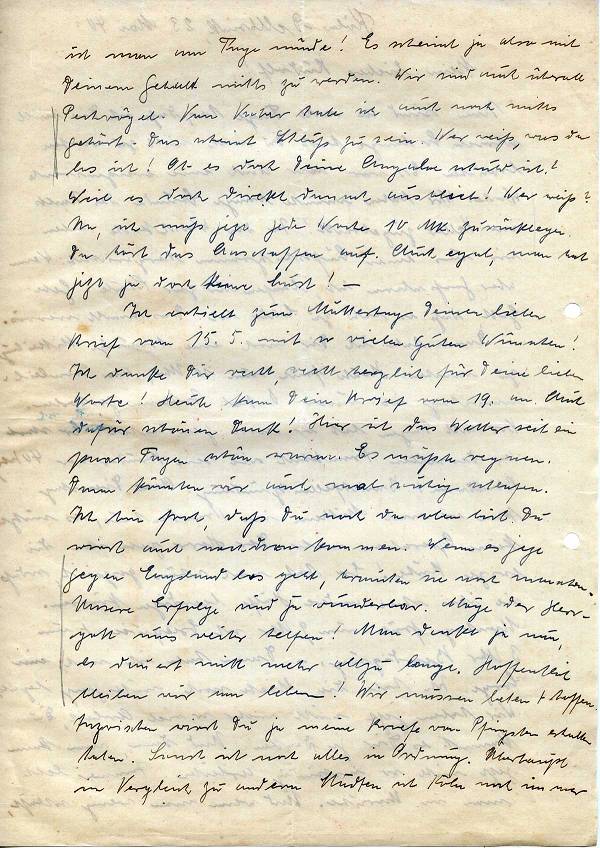 ist man am Tage müde! Es scheint ja also mit
Deinem Gehalt nichts zu werden. Wir sind auch überall
Pechvögel. Von habe ich auch noch nichts
gehört. Das scheint Schluß zu sein. Wer weiß, was da
los ist! Ob es doch Deine Angabe schuld ist?
Weil es doch direkt danach ausbleibt! Wer weiß?
Na, ich muß jetzt jede Woche 10 Mk. zurücklegen.
Da hört das Anschaffen auf. Auch egal, man hat
jetzt ja doch keine Lust! —
Ich erhielt zum Muttertag Deinen lieben
Brief vom 15. 5. mit so vielen guten Wünschen!
Ich danke Dir recht, recht herzlich für Deine lieben
Worte! Heute kam Dein Brief vom 19. an. Auch
dafür schönen Dank! Hier ist das Wetter seit ein
paar Tagen schön warm. Es müßte regnen.
Dann könnten wir auch mal ruhig schlafen.
Ich bin froh, daß Du noch da oben bist. Du
wirst auch noch dran kommen. Wenn es jetzt
gegen England los geht, brauchen sie noch manchen.
Unsere Erfolge sind ja wunderbar. Möge der Herr-
gott uns weiter helfen! Man denkt ja nun,
es dauert nicht mehr allzu lange. Hoffentlich
bleiben wir am leben! Wir müssen beten + hoffen.
Inzwischen wirst Du ja meine Briefe von Pfingsten erhalten
haben. Sonst ist noch alles in Ordnung. Überhaupt
im Vergleich zu andern Städten ist Köln noch immer